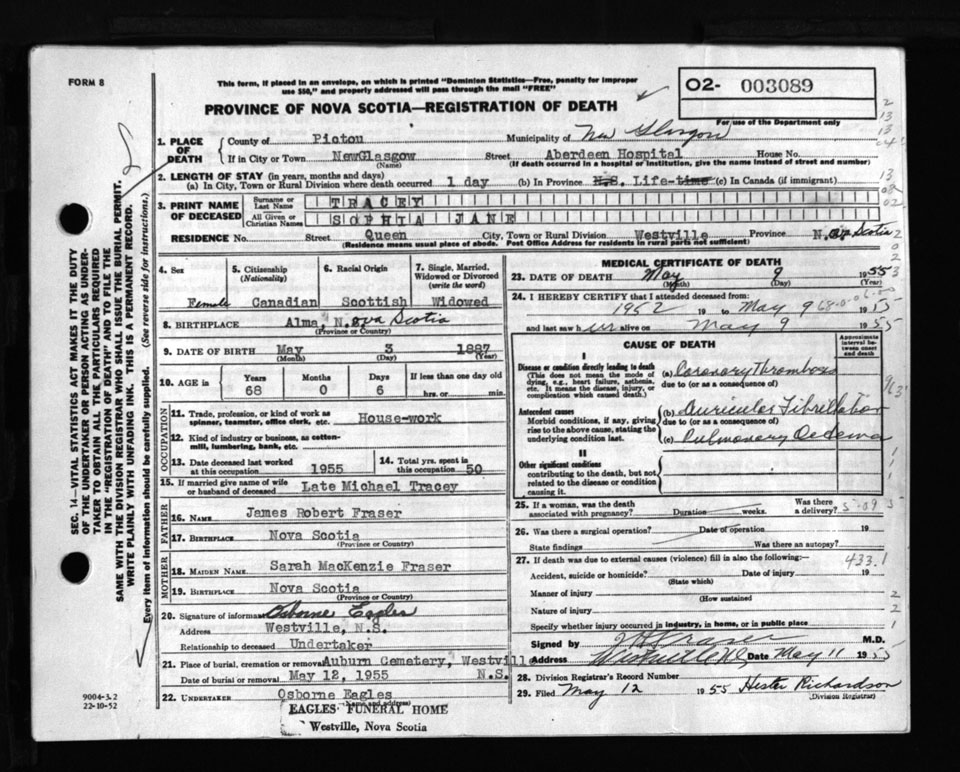 FORM 8
This form, if placed in an envelope, on which is printed "Dominion Statistics—Free, penalty for improper
use $50," and properly addressed will pass through the mail "FREE"
PROVINCE OF NOVA SCOTIA—REGISTRATION OF DEATH
O2- 003089
For use of the Department only
SEC. 14—VITAL STATISTICS ACT MAKES IT THE DUTY
OF THE UNDERTAKER OR PERSON ACTING AS UNDER-
TAKER TO OBTAIN ALL THE PARTICULARS REQUIRED
IN THE "REGISTRATION OF DEATH" AND TO FILE THE
SAME WITH THE DIVISION REGISTRAR WHO SHALL ISSUE THE BURIAL PERMIT.
WRITE PLAINLY WITH UNFADING INK. THIS IS A PERMANENT RECORD.
Every item of information should be carefully supplied. (See reverse side for instructions.)
1. PLACE OF DEATH
County of Pictou Municipality of New Glasgow
If in City or Town NewGlasgow Street Aberdeen Hospital House No.
(Name) (If death occurred in a hospital or institution, give the name instead of street and number)
2. LENGTH OF STAY (in years, months and days)
(a) In City, Town or Rural Division where death occurred 1 day (b) In Province N.S. Life-time (c) In Canada (if immigrant)
3. PRINT NAME OF DECEASED
Surname or Last Name TRACEY
All Given or Christian Names SOPHIA JANE
RESIDENCE No. Street Queen City, Town or Rural Division Westville Province N. Scotia
(Residence means usual place of abode. Post Office Address for residents in rural parts not sufficient)
4. Sex Female
5. Citizenship (Nationality) Canadian
6. Racial Origin Scottish
7. Single, Married, Widowed or Divorced (write the word) Widowed
8. BIRTHPLACE Alma Nova Scotia
(Province or Country)
9. DATE OF BIRTH May 3 1887
(Month) (Day) (Year)
10. AGE in Years 68 Months 0 Days 6 If less than one day old hrs. or min.
OCCUPATION
11. Trade, profession, or kind of work as spinner, teamster, office clerk, etc. House-work
12. Kind of industry or business, as cotton-mill, lumbering, bank, etc.
13. Date deceased last worked at this occupation 1955
14. Total yrs. spent in this occupation 50
15. If married give name of wife or husband of deceased Late Michael Tracey
FATHER
16. NAME James Robert Fraser
17. BIRTHPLACE Nova Scotia
(Province or Country)
MOTHER
18. MAIDEN NAME Sarah MacKenzie Fraser
19. BIRTHPLACE Nova Scotia
(Province or Country)
20. Signature of informant Osborne Eagles
Address Westville, N.S.
Relationship to deceased Undertaker
21. Place of burial, cremation or removal Auburn Cemetery, Westville
Date of burial or removal May 12, 1955 N.S.
22. UNDERTAKER Osborne Eagles
(Name and address)
EAGLES FUNERAL HOME
Westville, Nova Scotia
9004-3-2
22-10-52
MEDICAL CERTIFICATE OF DEATH
23. DATE OF DEATH May 9 1955
(Month) (Year)
24. I HEREBY CERTIFY that I attended deceased from:
1952 19 to May 9 1955
and last saw her alive on May 9 1955
CAUSE OF DEATH
Approximate interval between onset and death
I
Disease or condition directly leading to death
(This does not mean the mode of dying, e.g., heart failure, asthenia, etc. It means the disease, injury, or complication which caused death.)
(a) Coronary Thrombosis
due to (or as a consequence of)
Antecedent causes
Morbid conditions, if any, giving rise to the above cause, stating the underlying condition last.
(b) Auricular Fibrillation
due to (or as a consequence of)
(c) Pulmonary Oedema
II
Other significant conditions
contributing to the death, but not related to the disease or condition causing it.
25. If a woman, was the death associated with pregnancy? Duration weeks. Was there a delivery?
26. Was there a surgical operation? Date of operation 19
State findings Was there an autopsy?
27. If death was due to external causes (violence) fill in also the following:— 433.1
Accident, suicide or homicide? Date of injury 19
(State which)
Manner of injury
(How sustained
Nature of injury
Specify whether injury occurred in industry, in home, or in public place
Signed by Fraser M.D.
Address Westville NS Date May 11 1955
28. Division Registrar's Record Number
29. Filed May 12 1955 Hester Richardson
(Division Registrar)